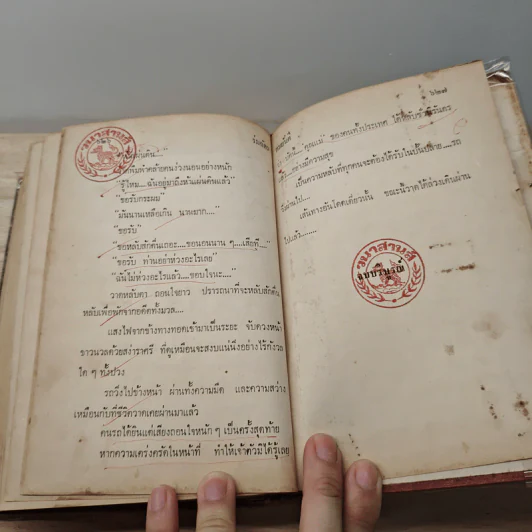 วนาสาบสี
"ขอรับกระผม"
"มันนานเหลือเกิน นานมาก...."
"ขอรับ"
"ขอหลับสักตื่นเถอะ....ขอนอนนาน ๆ....เสียที...."
"ขอรับ ท่านอย่าห่วงอะไรเลย"
"ฉันไม่ห่วงอะไรแล้ว....ขอบใจนะ...."
วาดหลับตา ถอนใจยาว ปรารถนาที่จะหลับสักตื่น
หลับเพื่อพักจากอดีตทั้งมวล....
แสงไฟจากข้างทางทอดเข้ามาเป็นระยะ จับดวงหน้า
ขาวนวลด้วยสง่าราศรี ที่ดูเหมือนจะสงบแน่นิ่งอย่างไร้กังวล
ใด ๆ ทั้งปวง
รถวิ่งไปข้างหน้า ผ่านทั้งความมืด และความสว่าง
เหมือนกับที่ชีวิตวาดเคยผ่านมาแล้ว
คนรถได้ยินแต่เสียงถอนใจหนัก ๆ เป็นครั้งสุดท้าย
หากความเคร่งครัดในหน้าที่ ทำให้เจ้าตัวมิได้รู้เลย
๖๒๗
"คุณแม่" ของคนทั้งประเทศ
อย่างมีความสุข
เป็นความหลับที่ทุกคนจะต้องได้รับในบั้นปลาย....รถ
วิ่งผ่านไป....
เส้นทางยังโคดเดี่ยวนั้น ขณะนี้วาดได้ล่วงเดินผ่าน
ไปแล้ว.......
วนาสาบสี
จบบริบูรณ์